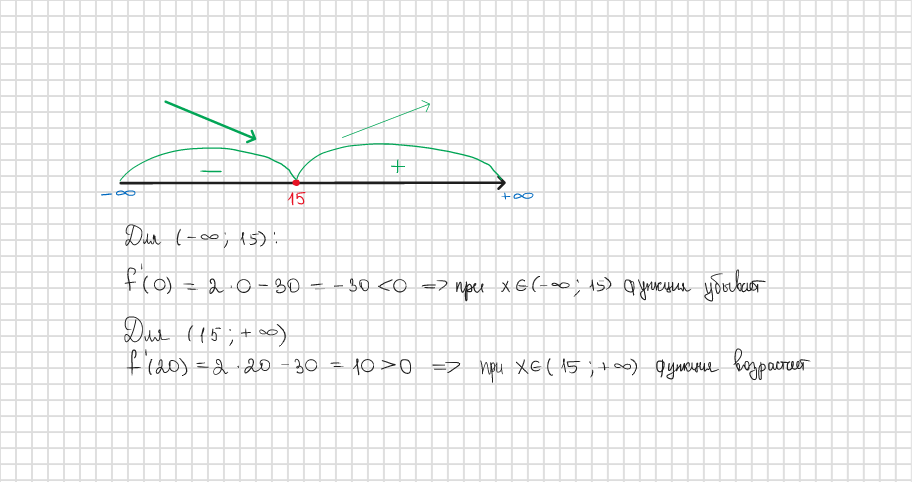 − +
−∞ 15 +∞
Для (−∞; 15):
f'(0) = 2·0−30 = −30<0 => при x∈(−∞; 15) функция убывает
Для (15; +∞)
f'(20) = 2·20−30 = 10>0 => при x∈(15; +∞) функция возрастает